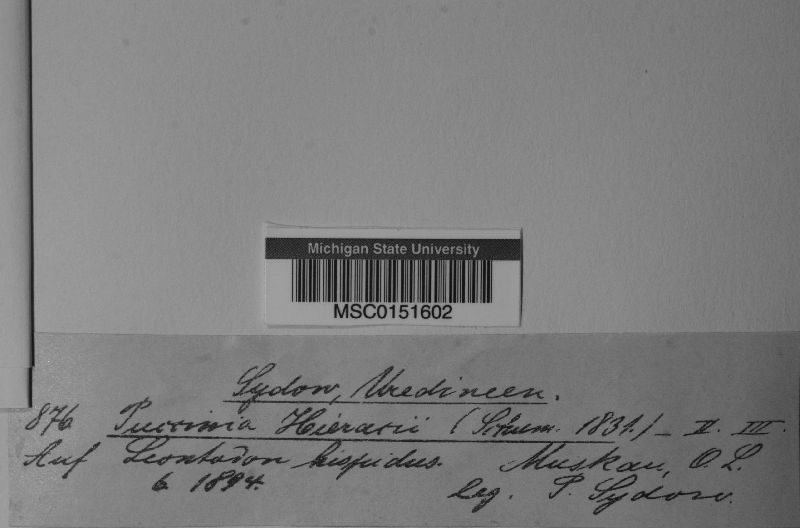 Michigan State University
MSC0151602
Sydow, Uredineen.
876 Puccinia Hieracii (Schum. 1831.) – II. III.
Auf Leontodon hispidus. Muskau, O. L.
6. 1894. leg. P. Sydow.